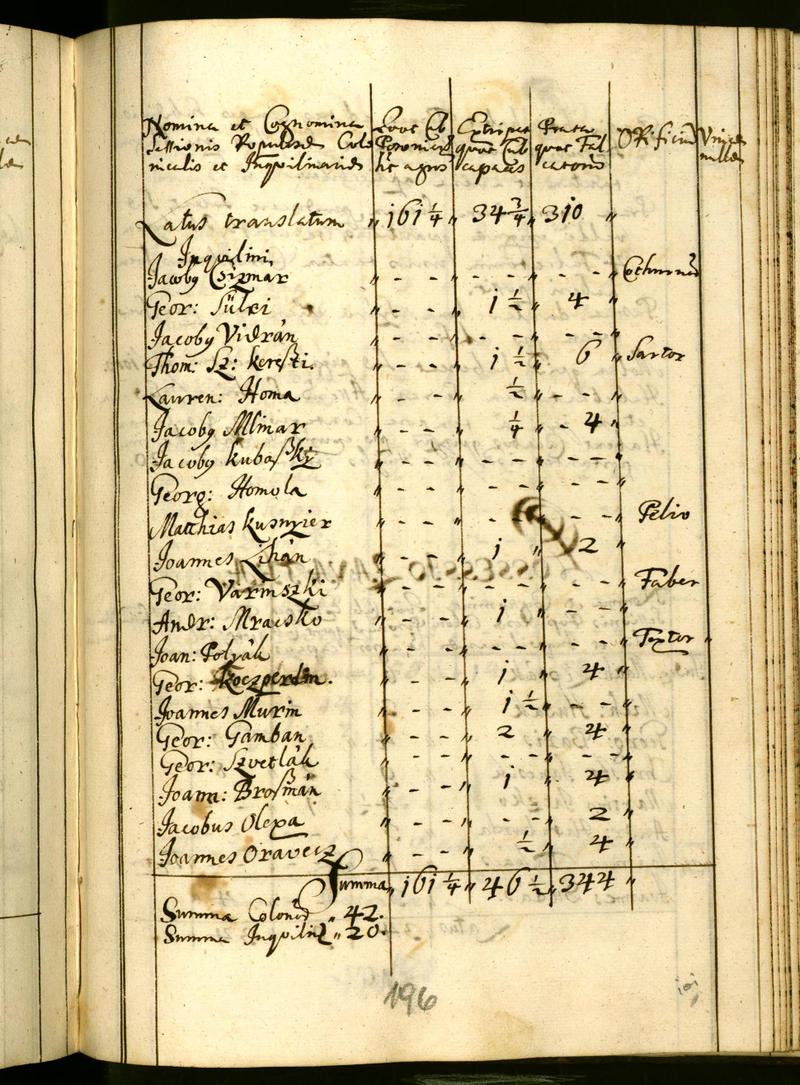 Nomina et Cognomina
Sessionis Colo
nicalis et Inqvilinaris
Extirpa
quae sub
capaas
Prata
quae Fal
catoru
Latus translatum " 161 1/4 " 34 3/4 " 310 "
Inqvilini
Jacoby Csizmar " - - " - - " - - "
Geor: Sülei " - - " 1 1/2 " 4 "
Jacoby Vidrán " - - " - - " - - "
Thom: Sz: kereszti. " - - " 1 1/2 " 6 " Sartor
Lauren: Homa " - - " 1/2 " - - "
Jacoby Mlinar " - - " 1/4 " - 4 "
Jacoby kubaszky " - - " - - " - - "
Georg: Homola " - - " - - " - - "
Matthias kusnyier " - - " - - " - - " Pelio
Joannes Lihán " - - " 1 " 2 "
Geor: Varinszki " - - " - - " - - " Faber
Andr: Mracsko " - - " 1 " - - "
Joan: Polyák " - - " - - " - - " Textor "
Geor: " - - " 1 " 4 "
Joannes Murin " - - " 1 1/2 " - - "
Geor: Gamban " - - " 2 " 4 "
Geor: Szvetlák " - - " - - " - - "
Joann: Broszmán " - - " 1 " 4 "
Jacobus Olexa " - - " - - " 2 "
Joannes Oravecz " - - " 1/2 " 4 "
Summa " 161 1/4 " 46 1/2 " 344 "
Summa Colonor " 42.
Summa Inqvilin " 20.
196